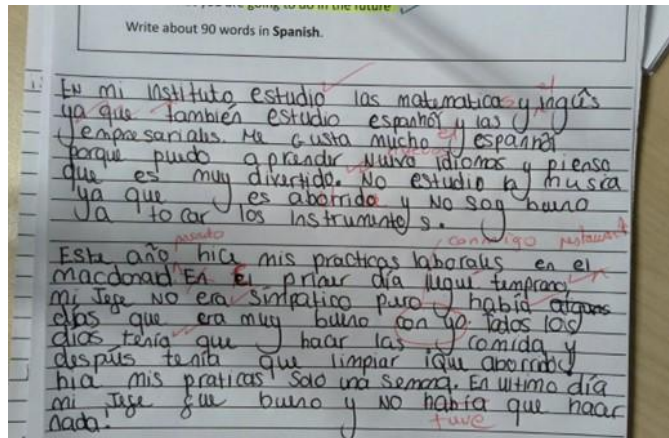 you are going to do in the future
Write about 90 words in Spanish.
En mi instituto estudio las matematicas y inglês
ya que también estudio espanhõl y las
empresarialis. Me Gusta mucho el espanhõl
porque puedo aprender Nuivo idiomos y pienso
que es muy divertido. No estudio la musia
ya que es aborrido y No soy bueno
a tocar los instrumentos.
conmigo restaurant
Este año hice mis practicas laboralis en el
macdonald En El primer día llegué temprano,
mi Jege No era simpatico puro había alguns
días que era muy bueno con yo. Todos los
días tenía que haar las comida y
despúis tenía que limpiar ¡que aborrido!
hia mis praticas Solo una semana. En ultimo día
mi Jege fue bueno y No había que haar
nada!
tuve